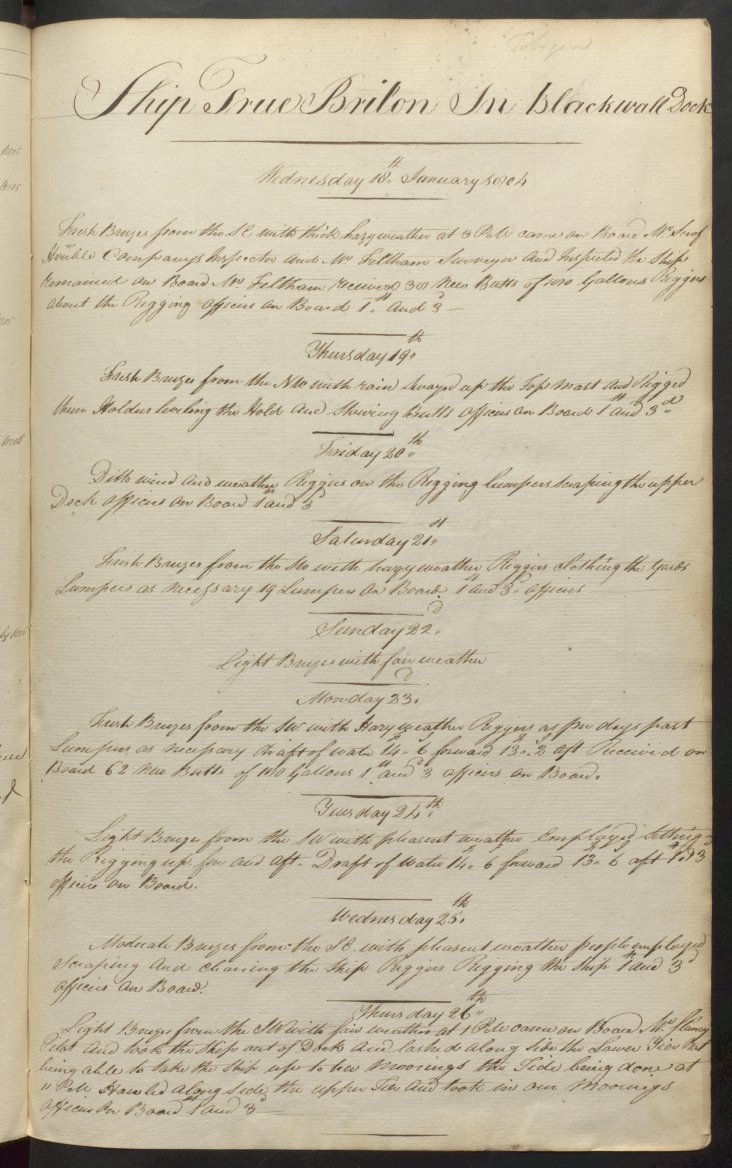 Ship True Briton In Blackwall Dock
Wednesday 18th January 1804
Fresh Breezes from the SE with thick hazy weather at 3 PM came on Board Mr
Honble Companys Inspector and Mr Feltham Surveyor and Inspected the Ship
Remained on Board Mr Feltham received 30 New Butts of 100 Gallons Riggers
about the Rigging officers on Board 1st and 3d
Thursday 19th
Fresh Breezes from the NW with rain swayd up the Top Mast and Rigged
them Holders leveling the Hold and Stowing Butts officers on Board 1st and 3d
Friday 20th
Ditto wind and weather Riggers on the Rigging Lumpers scraping the upper
Deck officers on Board 1st and 3d
Saturday 21st
Fresh Breezes from the SW with hazy weather Riggers clothing the Yards
Lumpers as necessary 19 Lumpers on Board. 1st and 3d officers
Sunday 22d
Light Breezes with fair weather
Monday 23d
Fresh Breezes from the SW with Hazy weather Riggers as per days past
Lumpers as necessary Draft of water 14.6 forward 13.2 aft Received on
Board 62 New Butts of 100 Gallons 1st and 3d officers on Board.
Tuesday 24th
Light Breezes from the SW with pleasent weather Employed Setting
the Rigging up for and aft. Draft of Water 14.6 forward 13.6 aft 1st & 3d
officers on Board.
Wednesday 25th
Moderate Breezes from the SE with pleasent weather people employed
Scraping and cleaning the Ship Riggers Rigging the Ship 1st and 3d
officers on Board.
Thursday 26th
Light Breezes from the SW with fair weather at 1 PM came on Board Mr
Pilot and took the Ship out of Dock and lashed along side the Lower Tier Not
being able to take the Ship up to her Moorings the Tide being done at
11 PM Hauled along side the upper Tier and took in our Moorings
officers on Board 1st and 3d